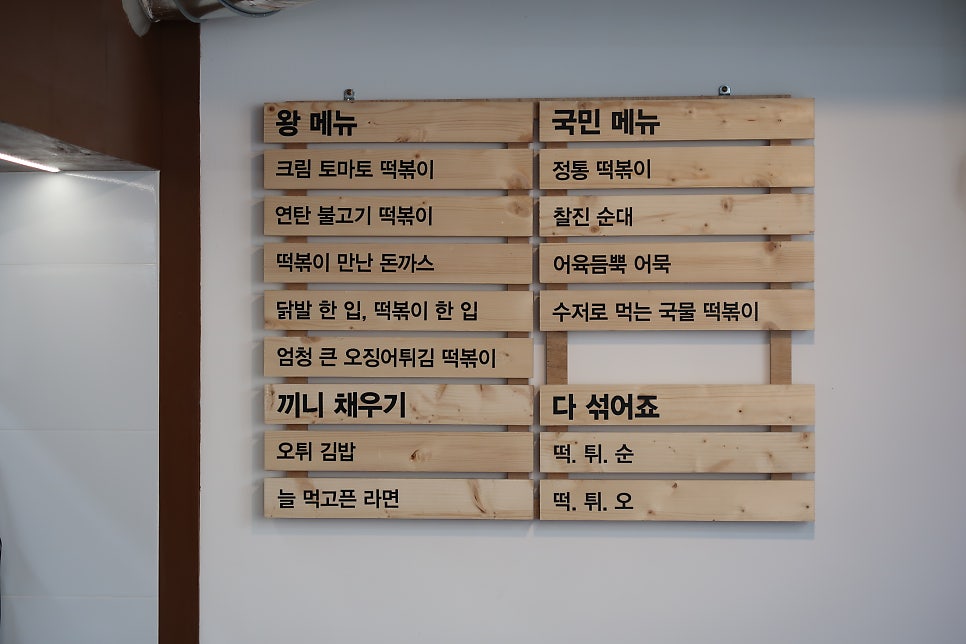 왕 메뉴
크림 토마토 떡볶이
연탄 불고기 떡볶이
떡볶이 만난 돈까스
닭발 한 입, 떡볶이 한 입
엄청 큰 오징어튀김 떡볶이
끼니 채우기
오튀 김밥
늘 먹고픈 라면
국민 메뉴
정통 떡볶이
찰진 순대
어육듬뿍 어묵
수저로 먹는 국물 떡볶이
다 섞어죠
떡. 튀. 순
떡. 튀. 오